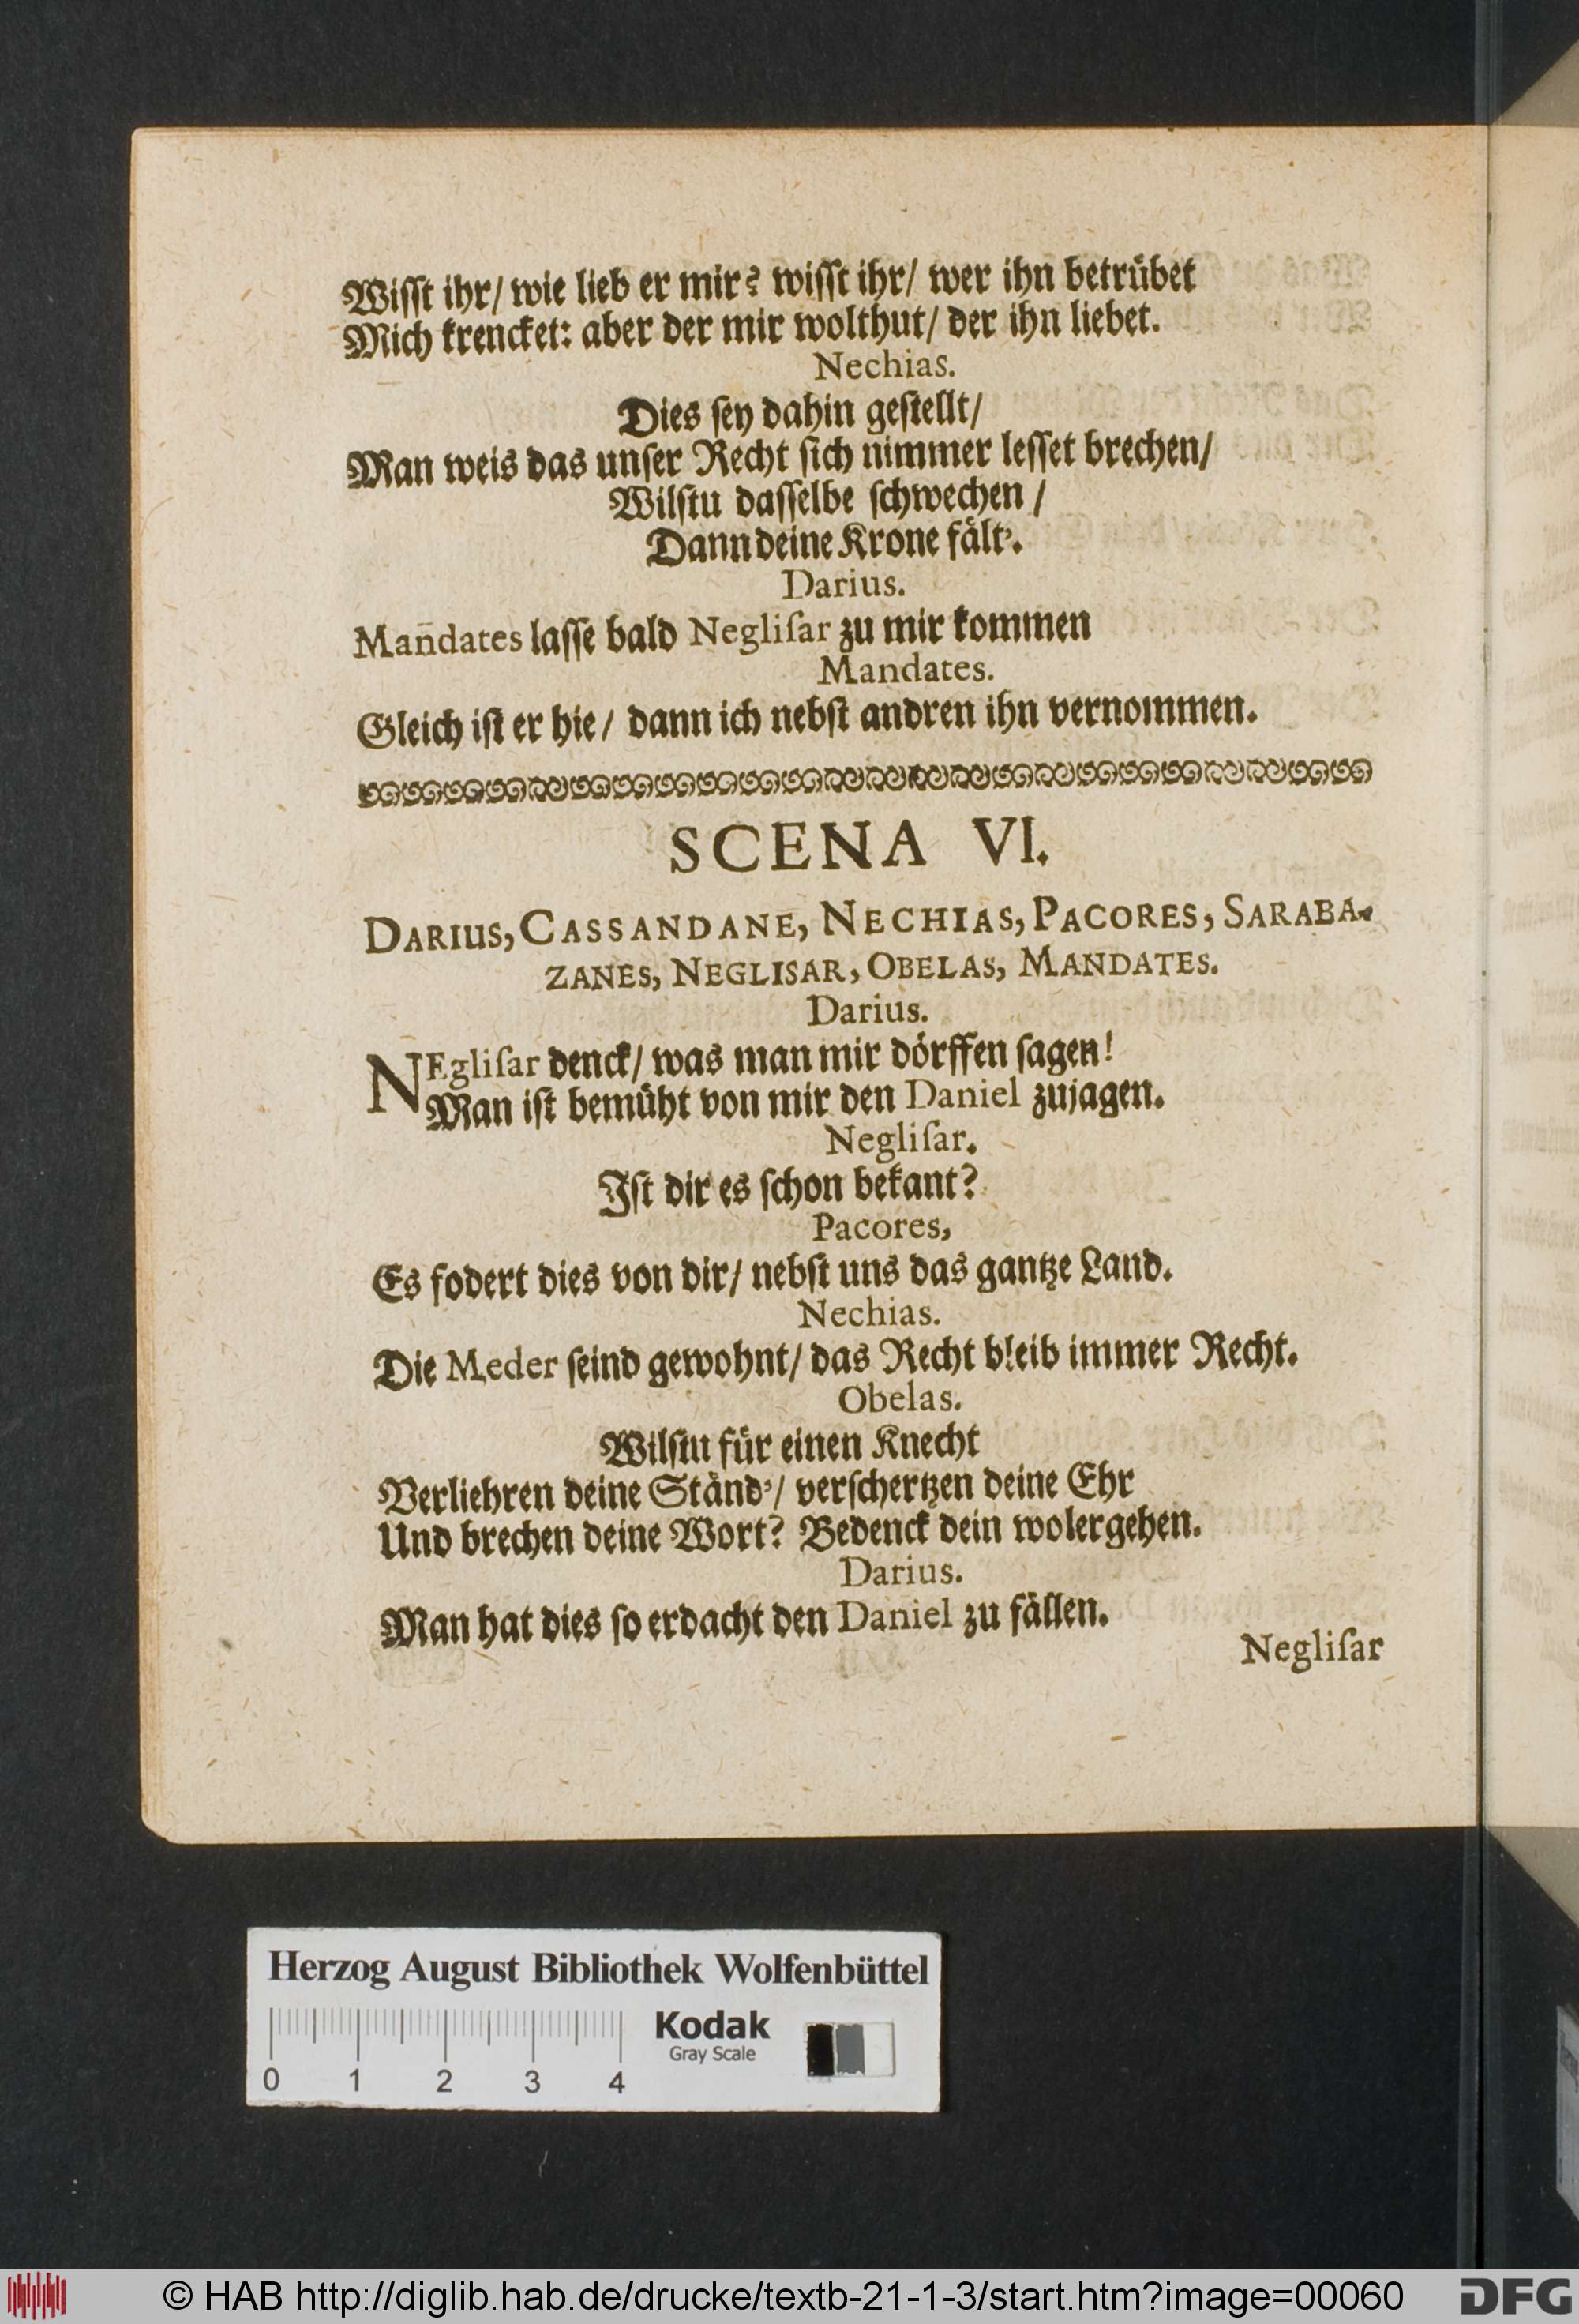 Wiſſt ihr/ wie lieb er mir? wiſſt ihr/ wer ihn betrübet
Mich krencket: aber der mir wolthut/ der ihn liebet.
Nechias.
Dies ſey dahin geſtellt/
Man weis das unſer Recht ſich nimmer leſſet brechen/
Wilſtu daſſelbe ſchwechen /
Dann deine Krone fält'.
Darius.
Mañdates laſſe bald Negliſar zu mir kommen
Mandates.
Gleich iſt er hie/ dann ich nebſt andren ihn vernommen.
SCENA VI.
DARIUS, CASSANDANE, NECHIAS, PACORES, SARABA-
ZANES, NEGLISAR, OBELAS, MANDATES.
Darius.
NEgliſar denck/ was man mir dörffen ſagen!
Man iſt bemüht von mir den Daniel zujagen.
Negliſar.
Iſt dir es ſchon bekant?
Pacores,
Es fodert dies von dir/ nebſt uns das gantze Land.
Nechias.
Die Meder ſeind gewohnt/ das Recht bleib immer Recht.
Obelas.
Wilſtu für einen Knecht
Verliehren deine Ständ'/ verſchertzen deine Ehr
Und brechen deine Wort? Bedenck dein wolergehen.
Darius.
Man hat dies ſo erdacht den Daniel zu fällen.
Negliſar
Herzog August Bibliothek Wolfenbüttel
Kodak
Gray Scale
0 1 2 3 4
© HAB http://diglib.hab.de/drucke/textb-21-1-3/start.htm?image=00060
DFG